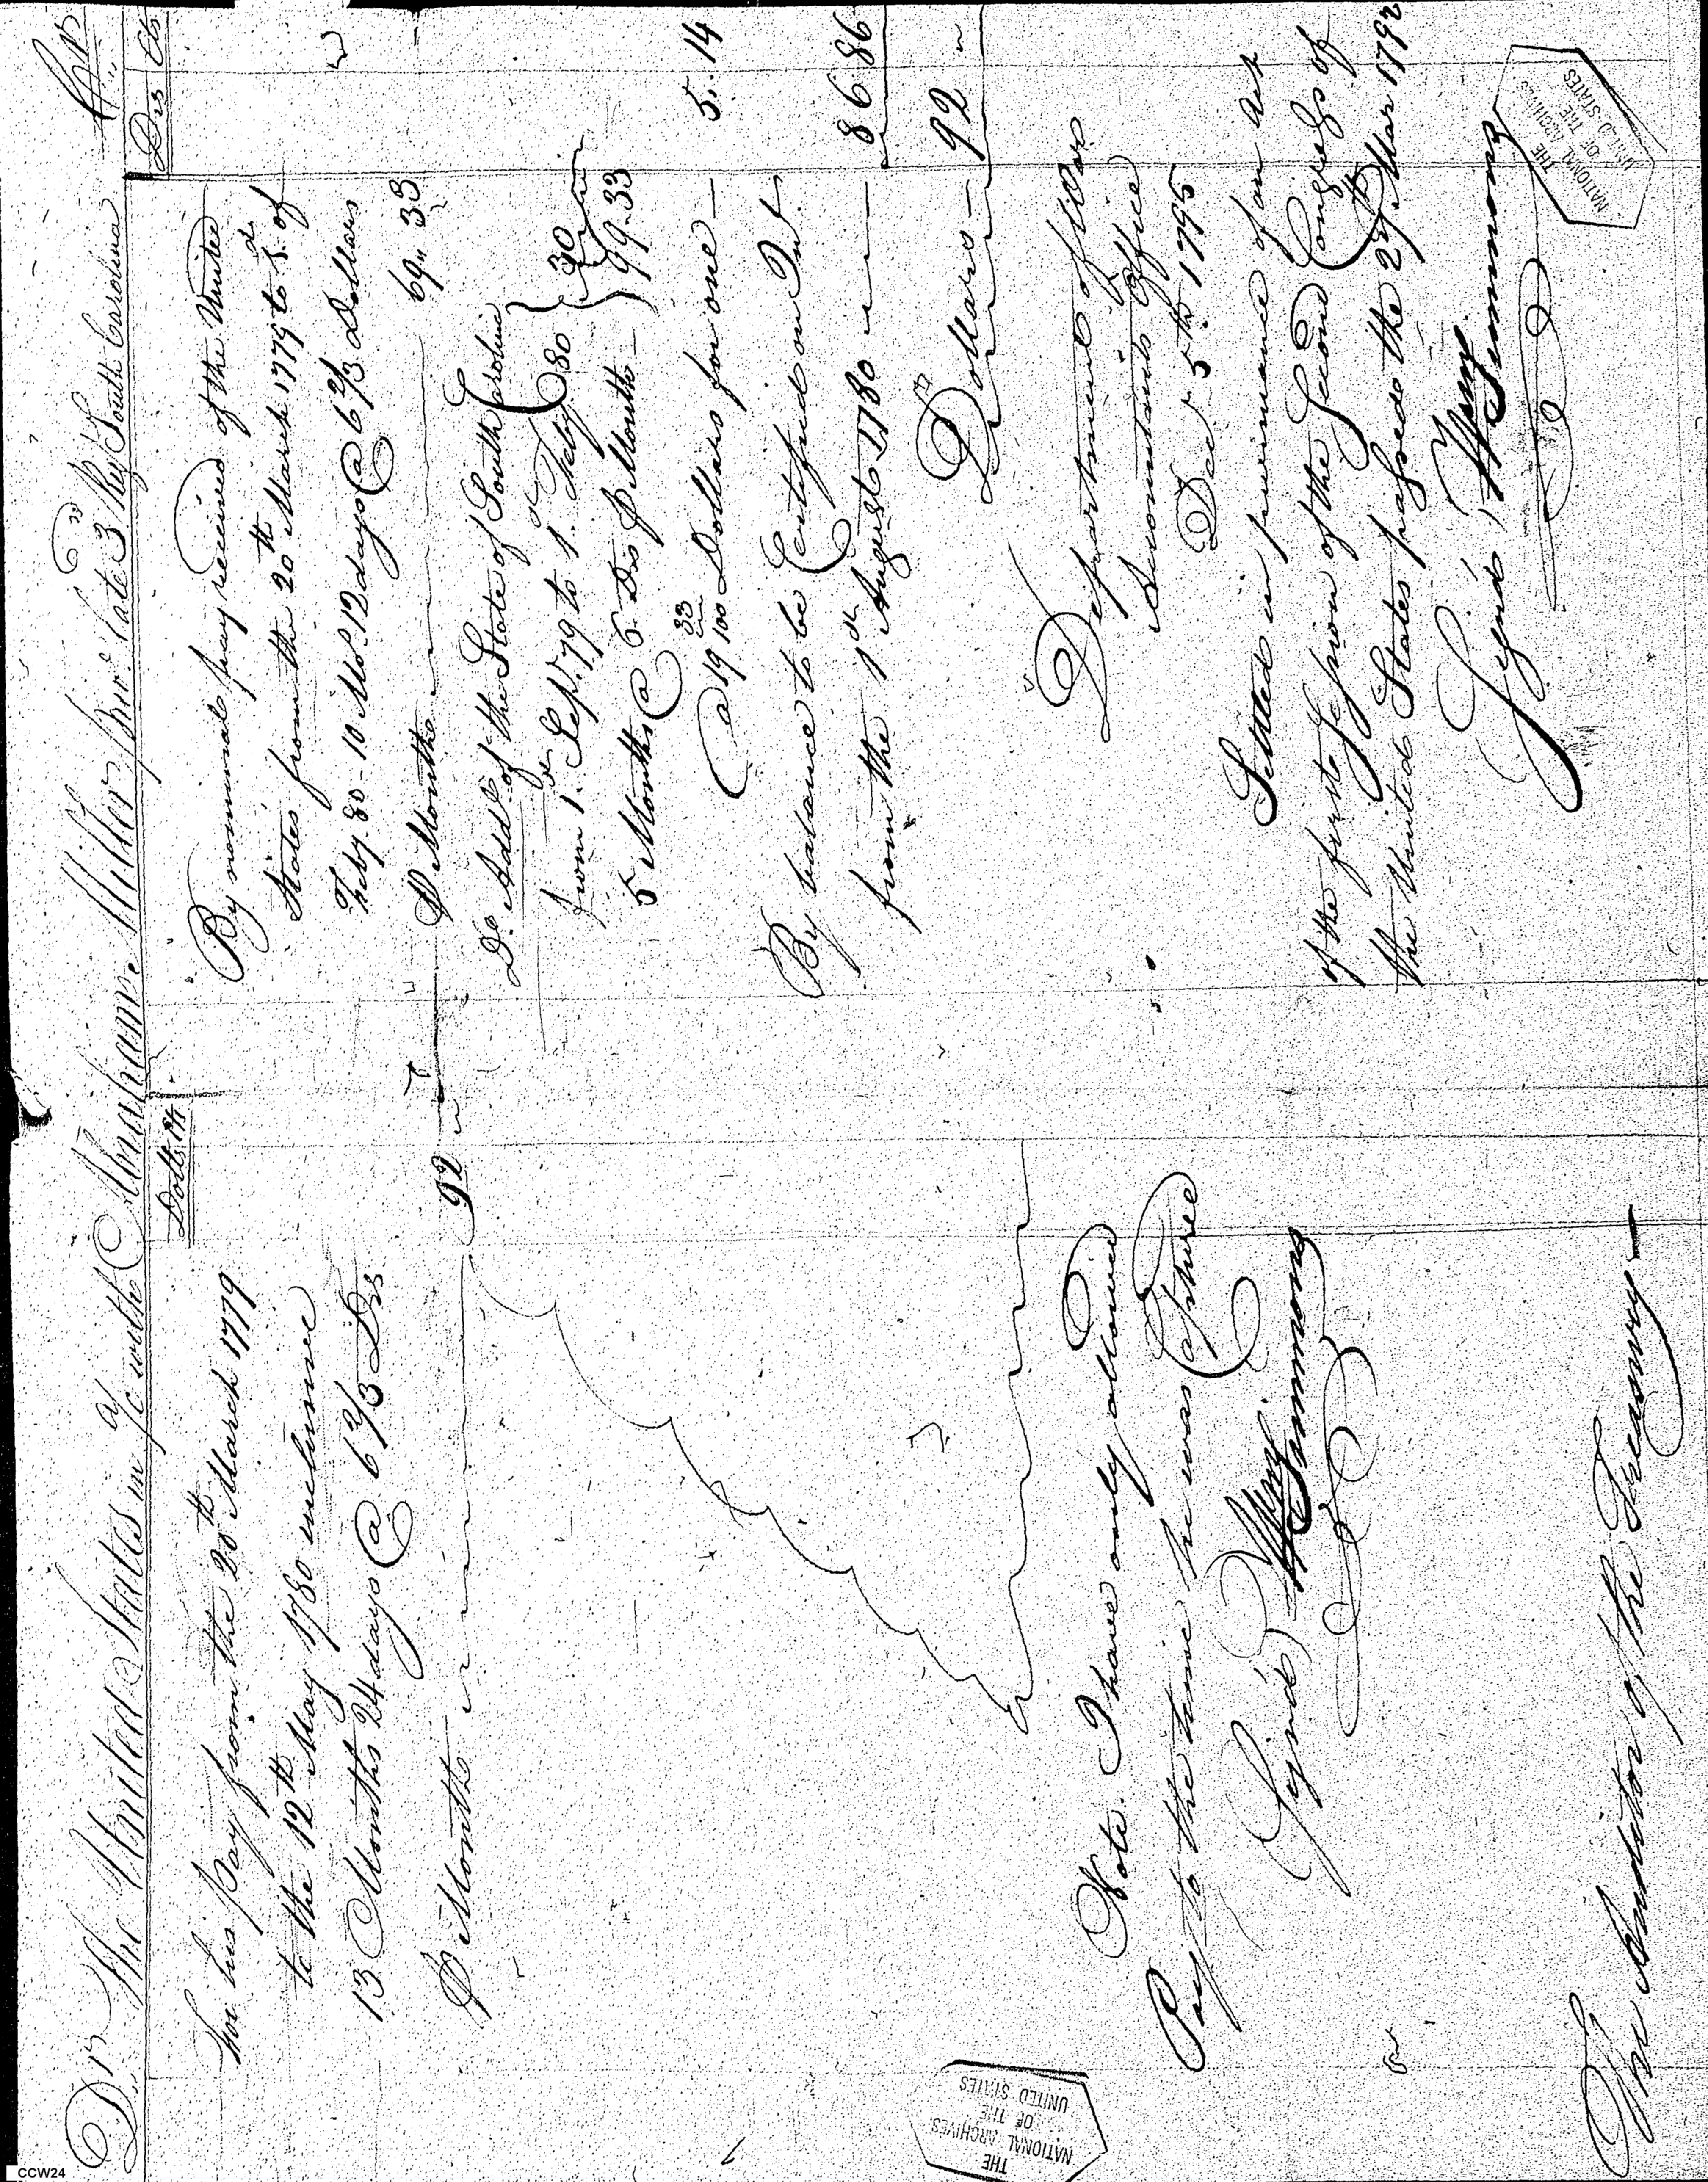 Dr The United States in a/c with Abraham Miller Priv.e late 3.d Reg.t South Carolina Cr
Dolls Cts
For his pay from the 20th March 1779
to the 12th May 1780 inclusive
13 Months 24 days @ 6 2/3 Drs
P Month 92 "
Note. I have only allowed
Pay to the time he was Captured
Sign'd Wm Simmons
The Auditor of the Treasury
Drs Cts
By nominal pay received of the United
States from the 20th March 1779 to 1.st of
Feby. 80 - 10 Mos. 12 days @ 6 2/3 Dollars
P Month 69 " 33
Do. Addl. of the State of South Carolina
from 1.st Sep. 79 to 1.st Feby. 80
5 Months @ 6 Drs P Month - 30 "
99.33
@ 19 33/100 Dollars for one - 5.14
By balance to be Certified on Int.
from the 1st August 1780 86.86
Dollars - 92 "
Department of War
Accountants Office
Dec.r 5th 1795
Settled in pursuance of an Act
of the first Session of the Second Congress of
the United States passed the 27th Mar 1792
Sign'd Wm Simmons
THE
NATIONAL ARCHIVES
OF THE
UNITED STATES
THE
NATIONAL ARCHIVES
OF THE
UNITED STATES
CCW24